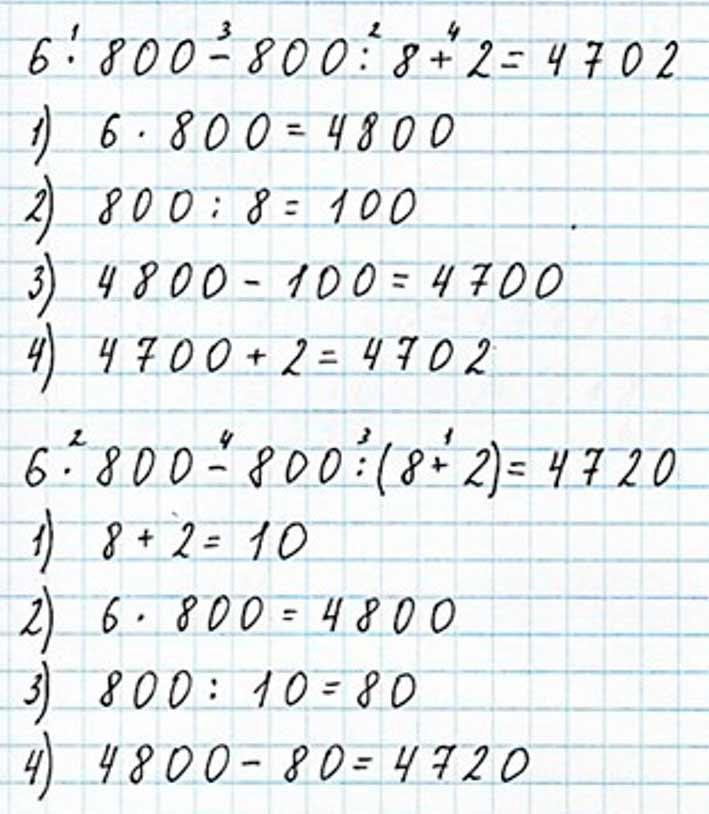 6 · 800 - 800 : 8 + 2 = 4702
1) 6 · 800 = 4800
2) 800 : 8 = 100
3) 4800 - 100 = 4700
4) 4700 + 2 = 4702
6 · 800 - 800 : (8 + 2) = 4720
1) 8 + 2 = 10
2) 6 · 800 = 4800
3) 800 : 10 = 80
4) 4800 - 80 = 4720